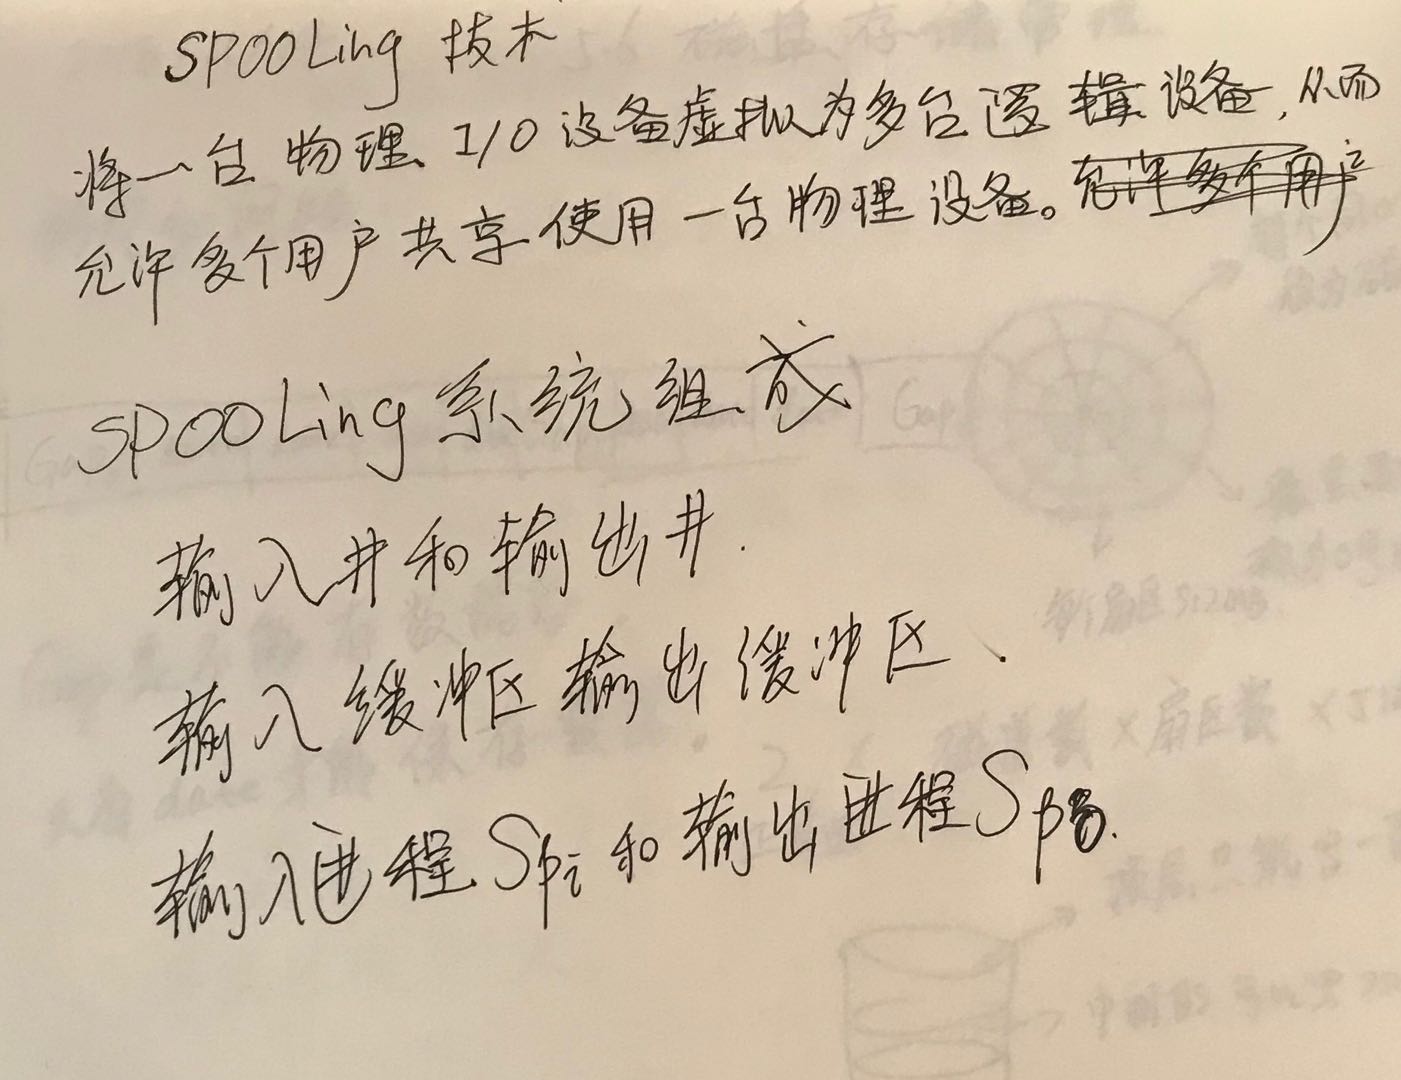 SPOOLing 技术
将一台物理 I/O 设备虚拟为多台逻辑设备，从而
允许多个用户共享使用一台物理设备。允许多个用户
SPOOLing 系统组成
输入井和输出井.
输入缓冲区 输出缓冲区、
输入进程 Spi 和输出进程 Spo.